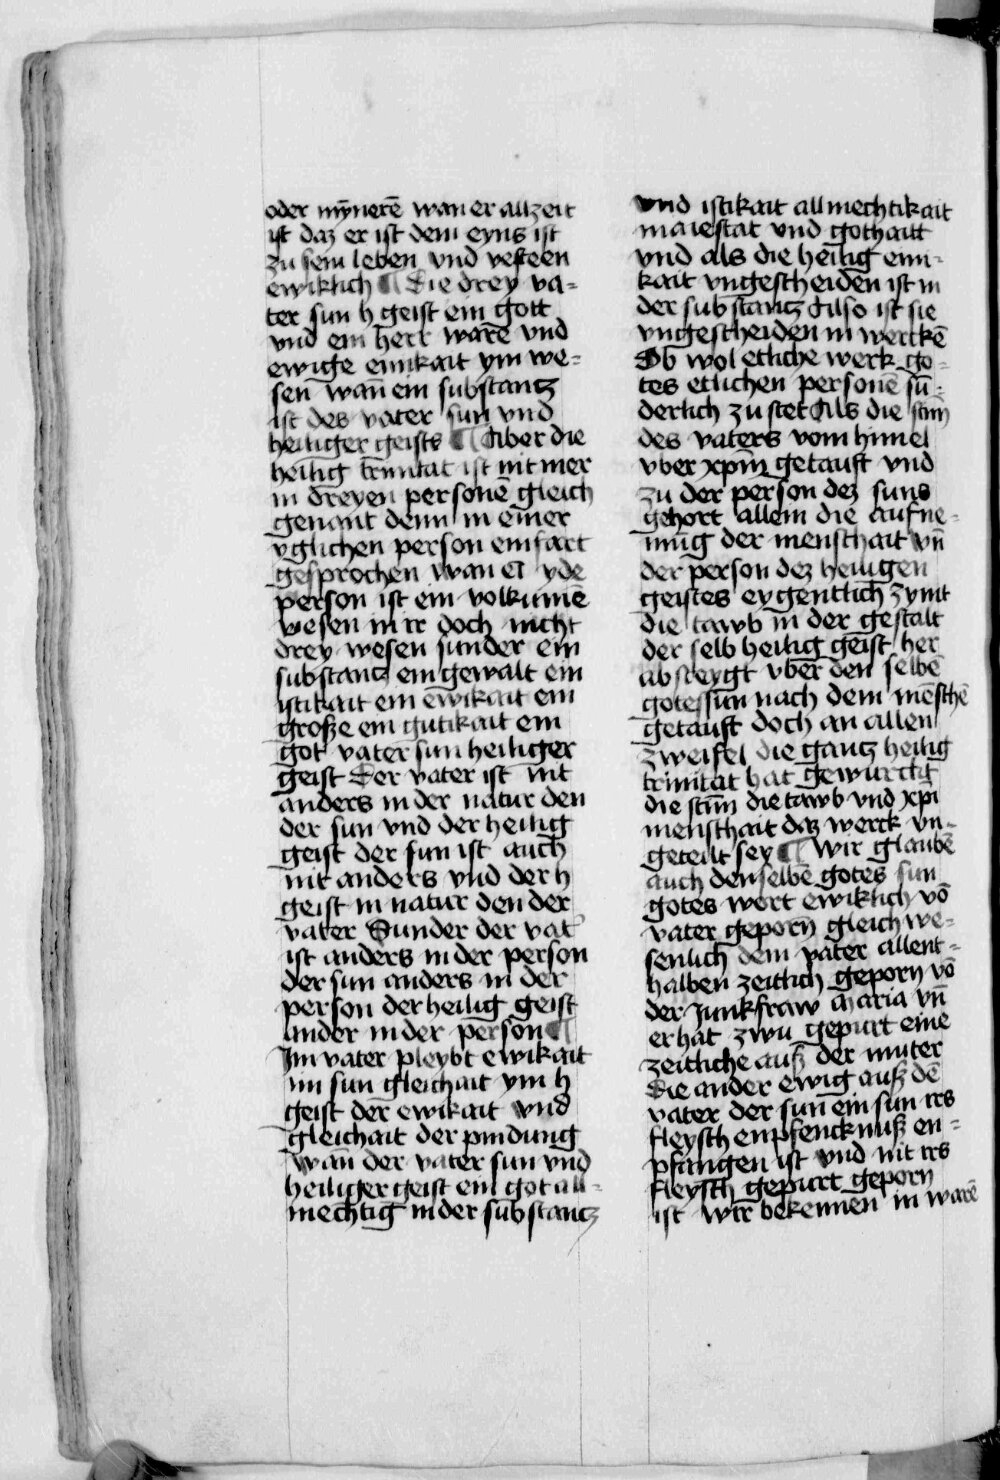 oder mÿnerē wan er allzeit
ist daz er ist dem eyns ist
zu sein leben vnd vesteen
ewiklich ¶ Die drey va-
ter sun h geist ein gott
vnd ein herr warē vnd
ewige einikait ym we-
sen wan̄ ein substantz
ist des vater sun vnd
heiliger geists ¶ Aber die
heilig trinitat ist nit mer
in dreyen personē gleich
genant denn in einer
yglichen person einfart
gesprochen wan ei yde
person ist ein volkumē
wesen in ir doch nicht
drey wesen sunder ein
substantz ein gewalt ein
istikait ein ewikait ein
große ein gutikait ein
got vater sun heiliger
geist Der vater ist nit
anders in der natur den
der sun vnd der heilig
geist der sun ist auch
nit anders vnd der h
geist in natur den der
vater Sunder der vat̕
ist anders in der person
der sun anders in der
person der heilig geist
ander in der person ¶
Im vater pleybt ewikait
im sun gleichait ym h
geist der ewikait vnd
gleichait der pindung
wan̄ der vater sun vnd
heiliger geist ein got all-
mechtig in der substantz
vnd istikait allmechtikait
maiestat vnd gothaitt
vnd als die heilig eini-
kait vngescheiden ist in
der substantz Also ist sie
vngescheiden in werckē
Ob wol etliche werk go-
tes etlichen personē sū-
derlich zu stet Als die stim
des vaters vom himel
vber xpm̄ getauft vnd
zu der person dez suns
gehort allein die aufne-
mūg der menschait vn̄
der person dez heiligen
geistes eygentlich zymt
die tawb in der gestalt
der selb heilig geist her
absteygt vber den selbē
gotessun nach dem mēschē
getauft doch an allen
zweifel die gantz heilig
trinitat hat gewurckt
die stim̄ die tawb vnd xpi
menschait daz werck vn-
geteilt sey ¶ Wir glaubē
auch denselbē gotes sun
gotes wort ewiklich vō
vater geporn̄ gleich we-
senlich dem vater allent-
halben zeitlich geporn vō
der Junkfraw Maria vn̄
er hat zwu gepurt eine
zeitliche auß der muter
die ander ewig auß dē
vater der sun ein sun irs
fleysch enpfencknuß en-
pfangen ist vnd nit irs
fleysch gepurt geporn
ist wir bekennen in warē